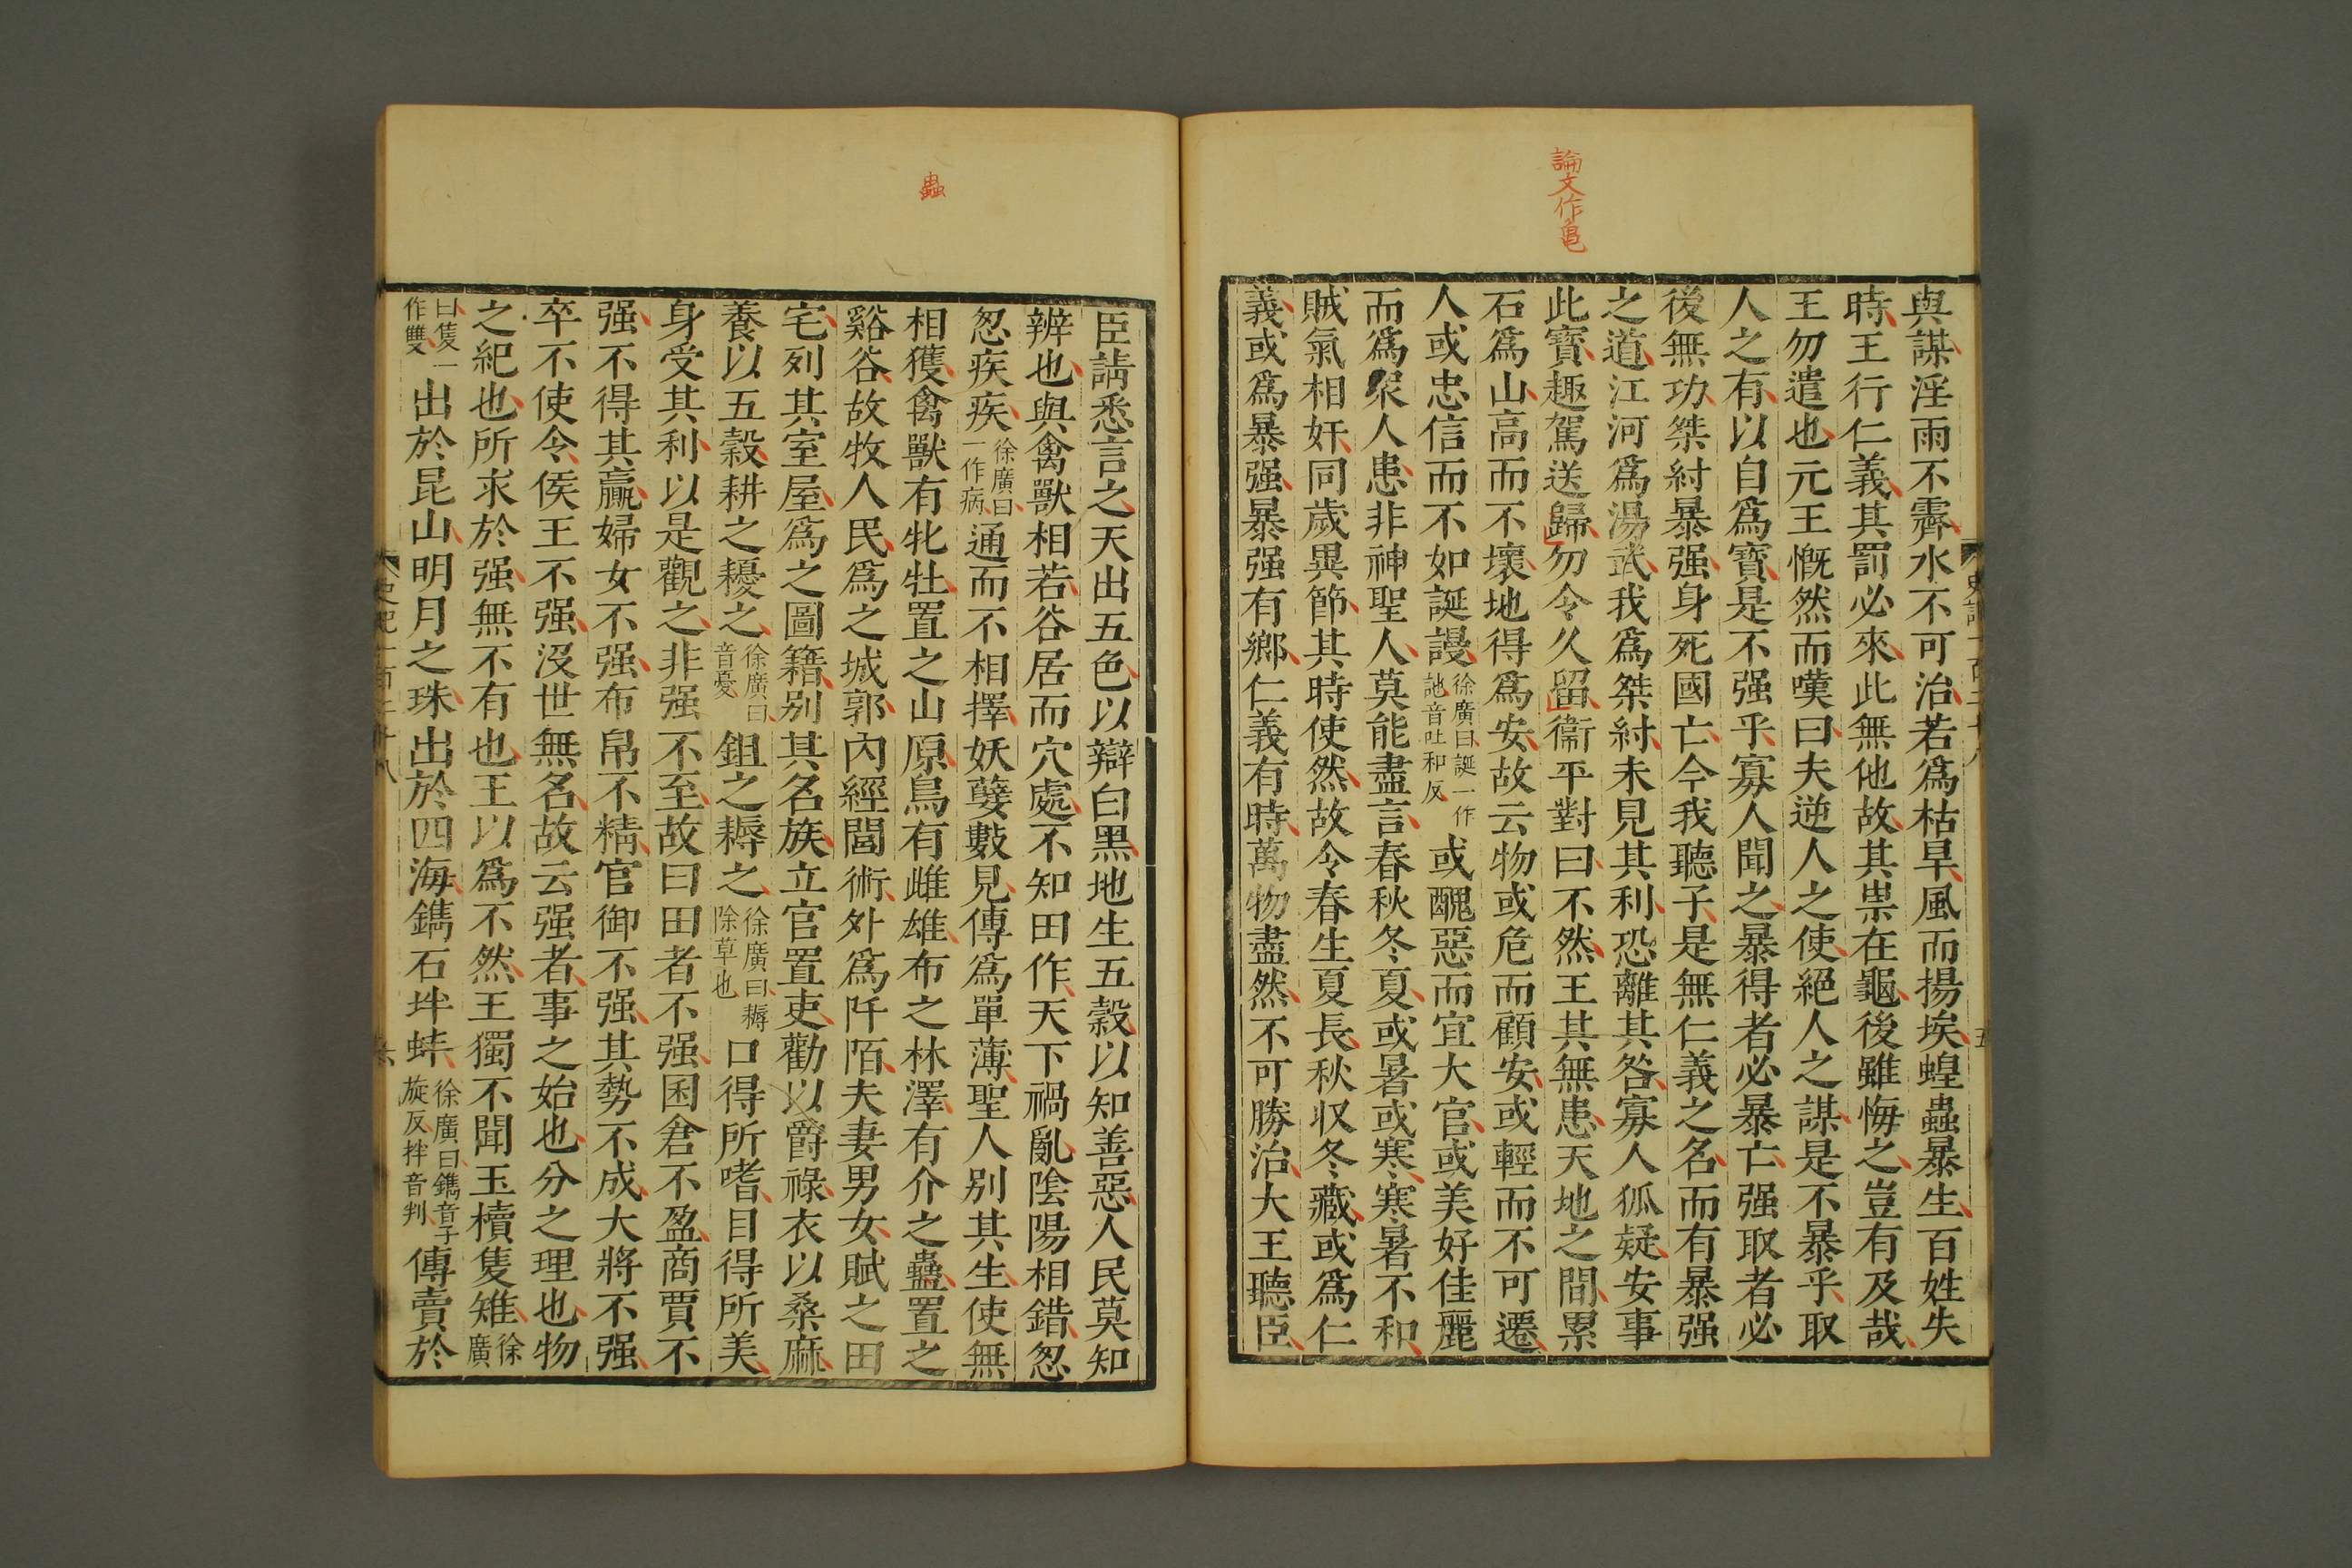 論文作龜
與謀淫雨不霽水不可治若爲枯旱風而揚埃蝗蟲暴生百姓失
時王行仁義其罰必來此無他故其祟在龜後雖悔之豈有及哉
王勿遣也元王慨然而嘆曰夫逆人之使絕人之謀是不暴乎取
人之有以自爲寶是不强乎寡人聞之暴得者必暴亡强取者必
後無功桀紂暴强身死國亡今我聽子是無仁義之名而有暴强
之道江河爲湯武我爲桀紂未見其利恐離其咎寡人狐疑安事
此寶趣駕送歸勿令久留衞平對曰不然王其無患天地之間累
石爲山高而不壞地得爲安故云物或危而顧安或輕而不可遷
人或忠信而不如誕謾徐廣曰誕一作訑音吐和反或醜惡而宜大官或美好佳麗
而爲衆人患非神聖人莫能盡言春秋冬夏或暑或寒寒暑不和
賊氣相奸同歲異節其時使然故令春生夏長秋収冬藏或爲仁
義或爲暴强暴强有鄉仁義有時萬物盡然不可勝治大王聽臣
蟲
臣請悉言之天出五色以辯白黑地生五穀以知善惡人民莫知
辨也與禽獸相若谷居而穴處不知田作天下禍亂陰陽相錯忽
忽疾疾徐廣曰一作病通而不相擇妖孽數見傳爲單薄聖人別其生使無
相獲禽獸有牝牡置之山原鳥有雌雄布之林澤有介之蟲置之
谿谷故牧人民爲之城郭內經閭術外爲阡陌夫妻男女賦之田
宅列其室屋爲之圖籍別其名族立官置吏勸以爵祿衣以桑麻
養以五穀耕之耰之徐廣曰音憂鉏之耨之徐廣曰耨除草也口得所嗜目得所美
身受其利以是觀之非强不至故曰田者不强囷倉不盈商賈不
强不得其贏婦女不强布帛不精官御不强其勢不成大將不强
卒不使令侯王不强沒世無名故云强者事之始也分之理也物
之紀也所求於强無不有也王以爲不然王獨不聞玉櫝隻雉徐廣
曰隻一作雙出於昆山明月之珠出於四海鐫石拌蚌徐廣曰鐫音子旋反拌音判傳賣於